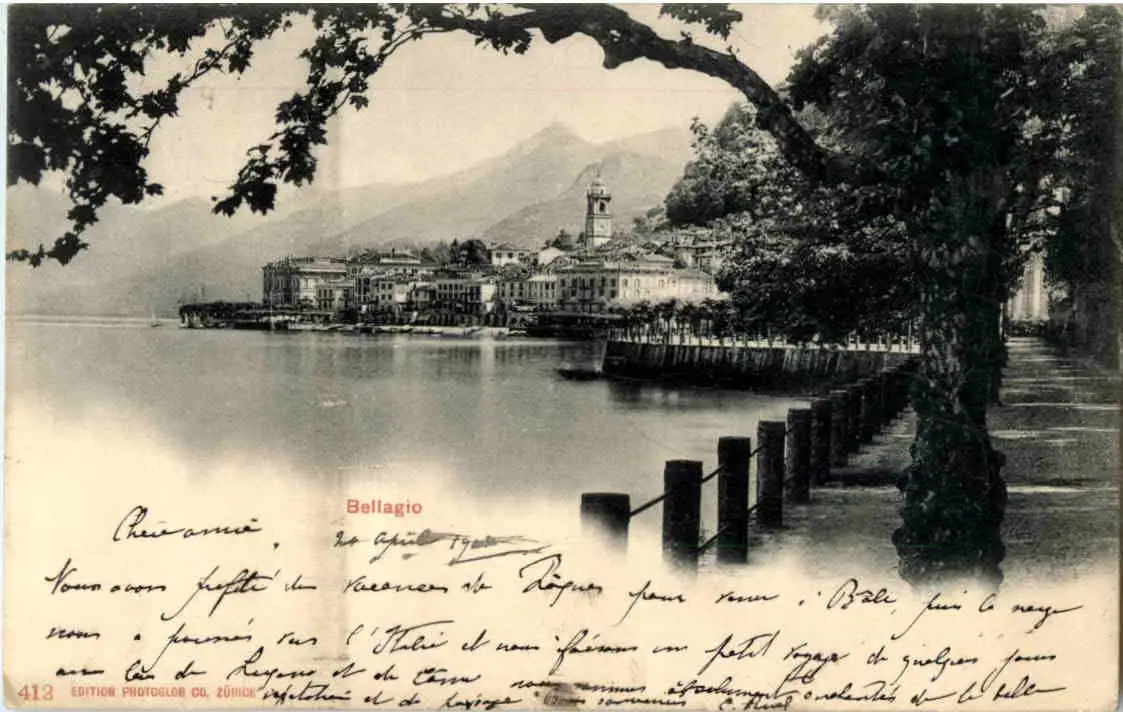 Bellagio
Chère amie,
20 April 190
Nous avons profité des vacances de Pâques pour venir à Bâle, puis la neige
nous a poussés vers l'Italie et nous faisons un petit voyage de quelques jours
aux lacs de Lugano et de Côme nous sommes absolument enchantés de la belle
végétation et de paysage souvenirs
412 EDITION PHOTOGLOB CO. ZÜRICH